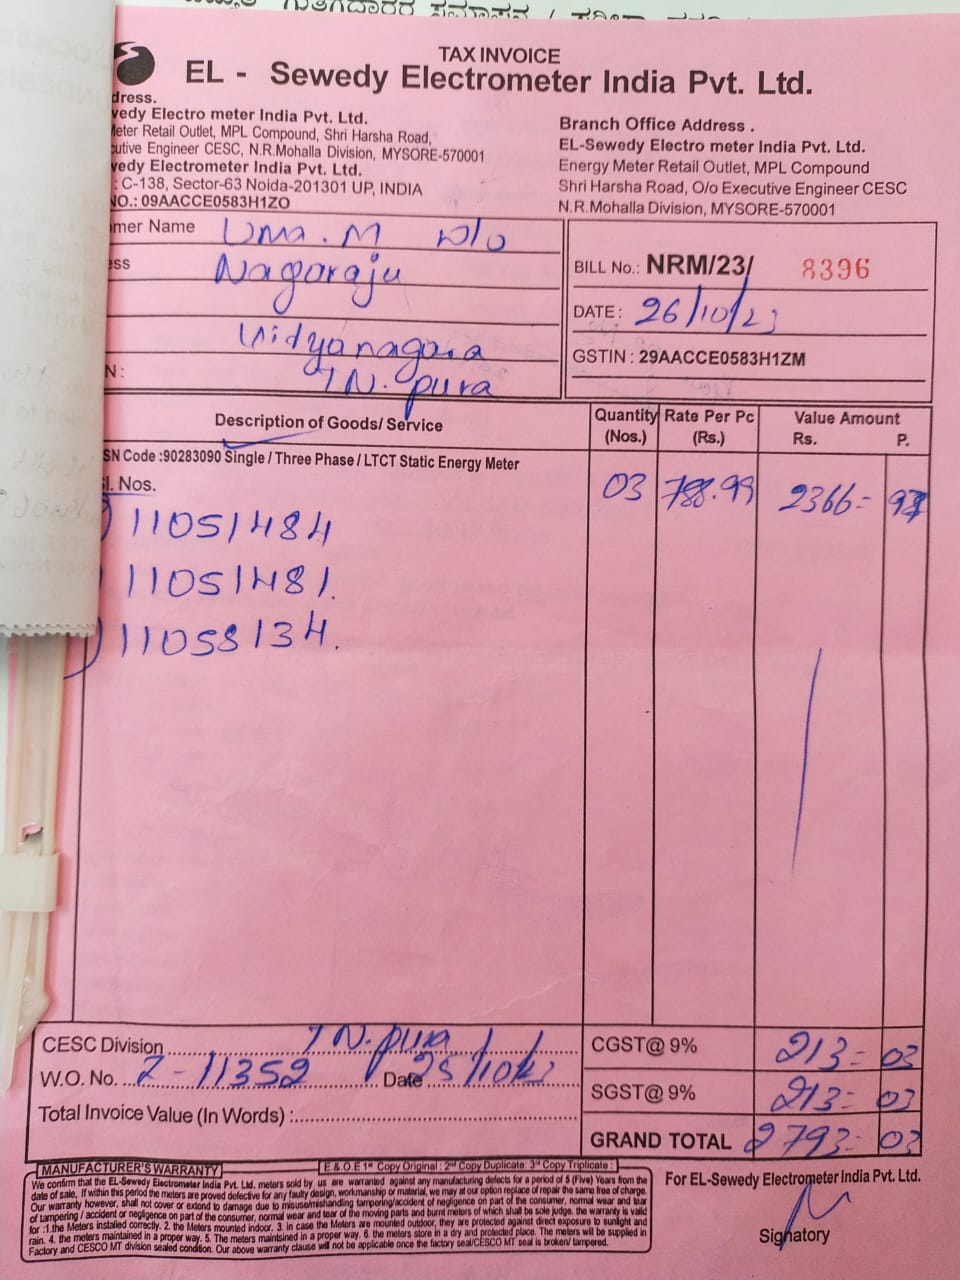 TAX INVOICE
EL - Sewedy Electrometer India Pvt. Ltd.
dress.
vedy Electro meter India Pvt. Ltd.
Meter Retail Outlet, MPL Compound, Shri Harsha Road,
cutive Engineer CESC, N.R.Mohalla Division, MYSORE-570001
vedy Electrometer India Pvt. Ltd.
: C-138, Sector-63 Noida-201301 UP, INDIA
NO.: 09AACCE0583H1ZO
Branch Office Address .
EL-Sewedy Electro meter India Pvt. Ltd.
Energy Meter Retail Outlet, MPL Compound
Shri Harsha Road, O/o Executive Engineer CESC
N.R.Mohalla Division, MYSORE-570001
mer Name Uma . M W/o
ess Nagaraju
Vidyanagara
N : T.N. pura
BILL No.: NRM/23/ 8396
DATE : 26/10/23
GSTIN : 29AACCE0583H1ZM
Description of Goods/ Service Quantity (Nos.) Rate Per Pc (Rs.) Value Amount Rs. P.
SN Code :90283090 Single / Three Phase / LTCT Static Energy Meter
l. Nos. 03 788.99 2366= 97
) 11051484
) 11051481.
) 11058134.
CESC Division T N. pura
W.O. No. 2-11352 Date 25/10/23
Total Invoice Value (In Words) :
CGST@ 9% 213= 03
SGST@ 9% 213= 03
GRAND TOTAL 2793= 03
MANUFACTURER'S WARRANTY
E & O.E 1st Copy Original : 2nd Copy Duplicate: 3rd Copy Triplicate :
We confirm that the EL-Sewedy Electrometer India Pvt. Ltd, meters sold by us are warranted against any manufacturing defects for a period of 5 (Five) Years from the
date of sale, If within this period the meters are proved defective for any faulty design, workmanship or material, we may at our option replace of repair the same free of charge.
Our warranty however, shall not cover or extend to damage due to misuse/mishandling tampering/accident of negligence on part of the consumer, normal wear and tear
of tampering / accident or negligence on part of the consumer, normal wear and tear of the moving parts and burnt meters of which shall be sole judge. the warranty is valid
for :1.the Meters installed correctly. 2. the Meters mounted indoor. 3. in case the Meters are mounted outdoor, they are protected against direct exposure to sunlight and
rain. 4. the meters maintained in a proper way. 5. The meters maintsined in a proper way. 6. the meters store in a dry and protected place. The meters will be supplied in
Factory and CESCO MT division sealed condition. Our above warranty clause will not be applicable once the factory seal/CESCO MT seal is broken/ tampered.
For EL-Sewedy Electrometer India Pvt. Ltd.
Signatory